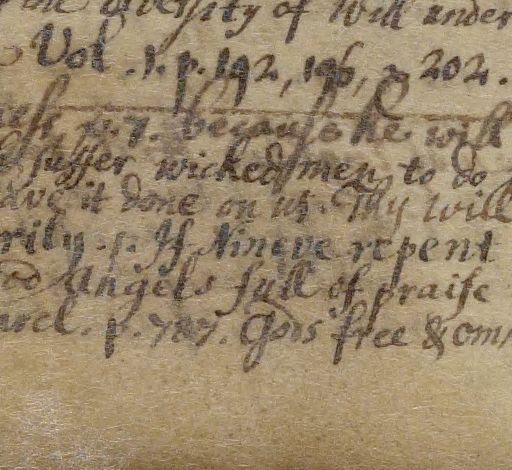 diversity of Will under
Vol. 1. p. 192, 196, & 202.
p. 7. because he will
suffer wicked men to do
it done on us. Thy will
rily. p. If Nineve repent
Angels full of praise
arel. p. 787. Gods free & om